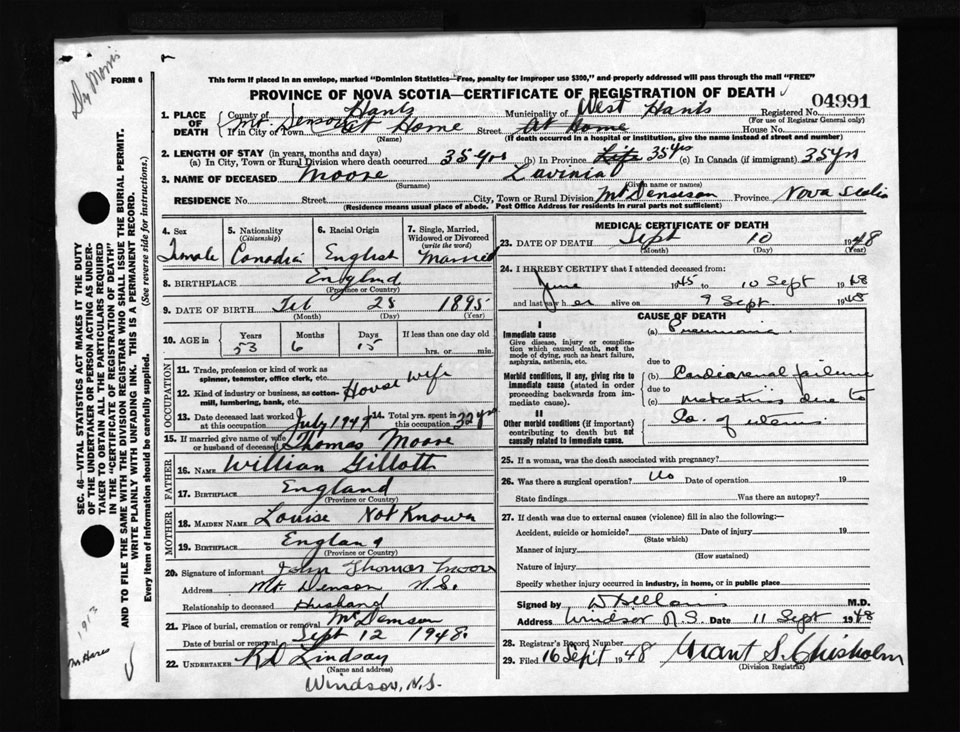 Dr Morris
FORM 6
This form if placed in an envelope, marked "Dominion Statistics—Free, penalty for improper use $300," and properly addressed will pass through the mail "FREE"
PROVINCE OF NOVA SCOTIA—CERTIFICATE OF REGISTRATION OF DEATH
04991
1. PLACE OF DEATH
County of Hants Municipality of West Hants Registered No.
(For use of Registrar General only)
If in City or Town Mt. Denson At Home Street At Home House No.
(Name) (If death occurred in a hospital or institution, give the name instead of street and number)
2. LENGTH OF STAY (in years, months and days)
(a) In City, Town or Rural Division where death occurred 35 yrs (b) In Province Life 35 yrs (c) In Canada (if immigrant) 35 yrs
3. NAME OF DECEASED Moore Lavinia
(Surname) (Given name or names)
RESIDENCE No. Street City, Town or Rural Division Mt Denson Province Nova Scotia
(Residence means usual place of abode. Post Office Address for residents in rural parts not sufficient)
4. Sex Female
5. Nationality (Citizenship) Canadia
6. Racial Origin English
7. Single, Married, Widowed or Divorced (write the word) Married
8. BIRTHPLACE England
(Province or Country)
9. DATE OF BIRTH Feb 28 1895
(Month) (Day) (Year)
10. AGE in Years 53 Months 6 Days 15 If less than one day old hrs. or min.
OCCUPATION
11. Trade, profession or kind of work as spinner, teamster, office clerk, etc. House wife
12. Kind of industry or business, as cotton-mill, lumbering, bank, etc.
13. Date deceased last worked at this occupation July 1947 14. Total yrs. spent in this occupation 32 yrs
15. If married give name of wife or husband of deceased Thomas Moore
FATHER
16. NAME William Gillott
17. BIRTHPLACE England
(Province or Country)
MOTHER
18. MAIDEN NAME Louise Not Known
19. BIRTHPLACE England
(Province or Country)
20. Signature of informant John Thomas Moore
Address Mt. Denson N.S.
Relationship to deceased Husband
21. Place of burial, cremation or removal Mt Denson
Date of burial or removal Sept 12 1948.
22. UNDERTAKER Lindsay
(Name and address)
Windsor, N.S.
MEDICAL CERTIFICATE OF DEATH
23. DATE OF DEATH Sept 10 1948
(Month) (Day) (Year)
24. I HEREBY CERTIFY that I attended deceased from:
June 1945 to 10 Sept 1948
and last saw her alive on 9 Sept. 1948
CAUSE OF DEATH
I
Immediate cause
Give disease, injury or complication which caused death, not the mode of dying, such as heart failure, asphyxia, asthenia, etc.
(a) Pneumonia
due to
Morbid conditions, if any, giving rise to immediate cause (stated in order proceeding backwards from immediate cause).
(b) Cardiorenal failure
due to
(c) Metastasis due to
Ca. of uterus
II
Other morbid conditions (if important) contributing to death but not causally related to immediate cause.
25. If a woman, was the death associated with pregnancy?
26. Was there a surgical operation? No Date of operation 19
State findings Was there an autopsy?
27. If death was due to external causes (violence) fill in also the following:—
Accident, suicide or homicide? Date of injury 19
(State which)
Manner of injury
(How sustained)
Nature of injury
Specify whether injury occurred in industry, in home, or in public place
Signed by M.D.
Address Windsor N.S. Date 11 Sept 1948
28. Registrar's Record Number
29. Filed 16 Sept 1948 Grant S. Chisholm
(Division Registrar)
SEC. 46—VITAL STATISTICS ACT MAKES IT THE DUTY
OF THE UNDERTAKER OR PERSON ACTING AS UNDER-
TAKER TO OBTAIN ALL THE PARTICULARS REQUIRED
IN THE "CERTIFICATE OF REGISTRATION OF DEATH"
AND TO FILE THE SAME WITH THE DIVISION REGISTRAR WHO SHALL ISSUE THE BURIAL PERMIT.
WRITE PLAINLY WITH UNFADING INK. THIS IS A PERMANENT RECORD.
Every item of information should be carefully supplied. (See reverse side for instructions.)
1913